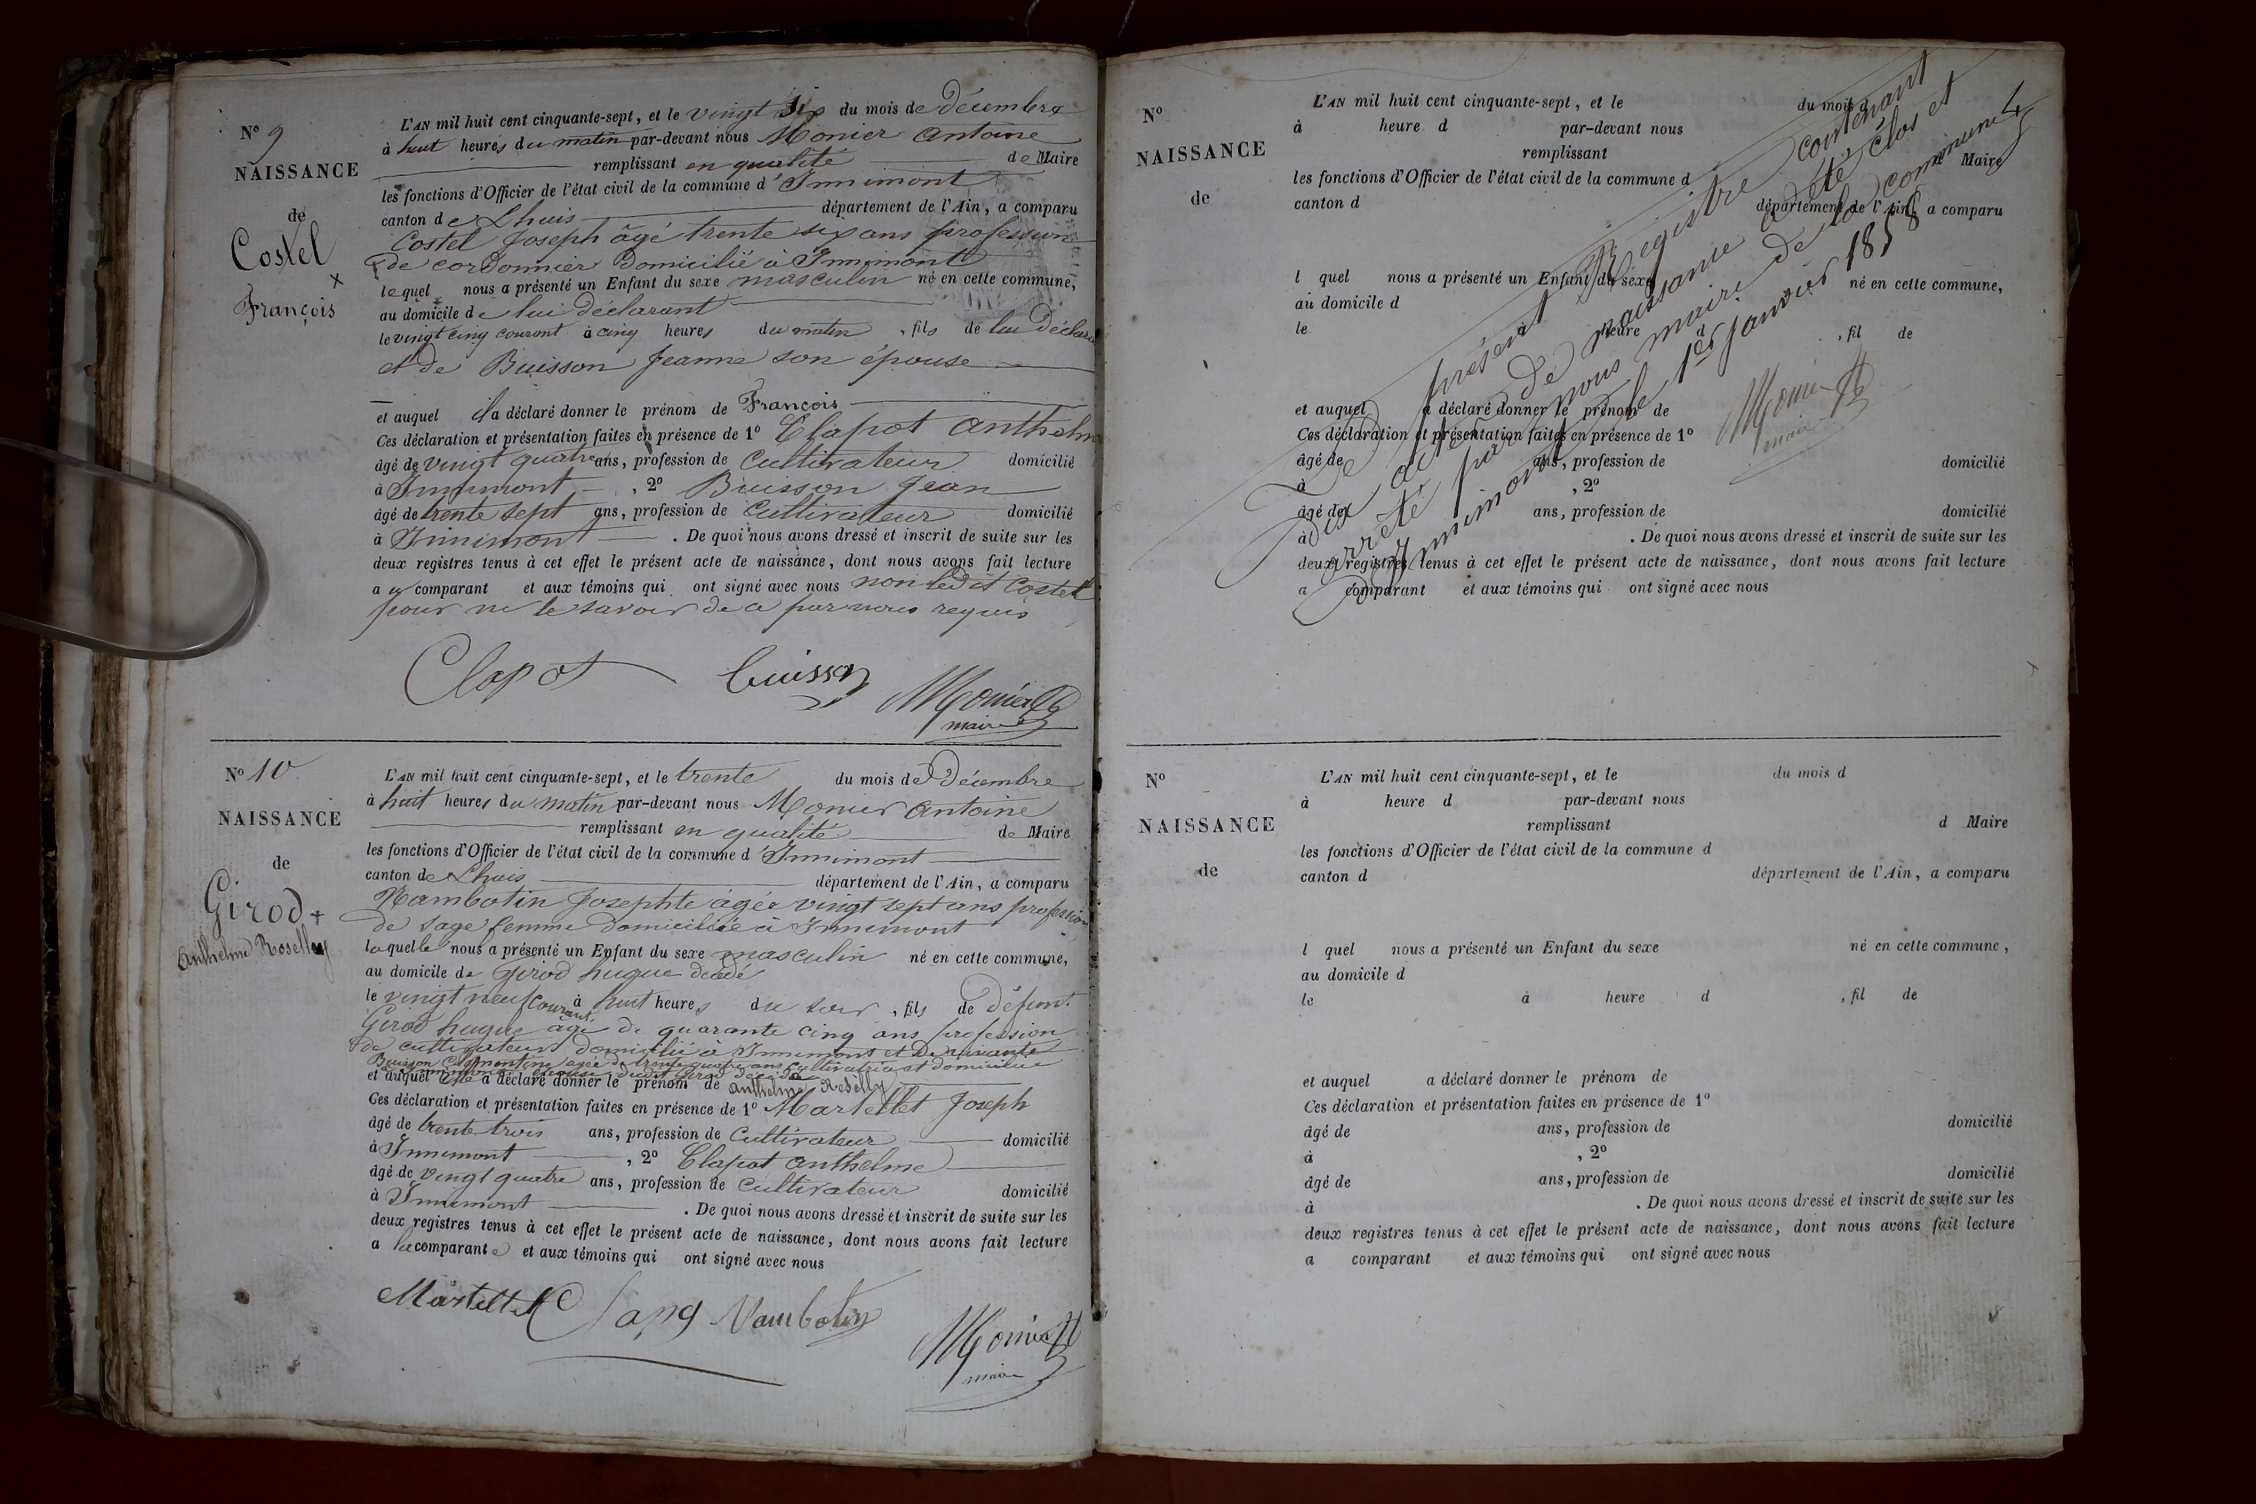 N° 9
NAISSANCE
de
Costel
François
L'AN mil huit cent cinquante-sept, et le vingt six du mois de Décembre
à huit heures du matin par-devant nous Monier Antoine
remplissant en qualité de Maire
les fonctions d'Officier de l'état civil de la commune d'Innimont
canton de Lhuis département de l'Ain, a comparu
Costel Joseph âgé trente six ans profession
de cordonnier domicilié à Innimont
lequel nous a présenté un Enfant du sexe masculin né en cette commune,
au domicile de lui déclarant
le vingt cinq courant à cinq heures du matin, fils de lui déclara
et de Buisson Jeanne son épouse
et auquel il a déclaré donner le prénom de François
Ces déclaration et présentation faites en présence de 1° Clapot Anthelm
âgé de vingt quatre ans, profession de Cultivateur domicilié
à Innimont, 2° Buisson Jean
âgé de trente sept ans, profession de Cultivateur domicilié
à Innimont. De quoi nous avons dressé et inscrit de suite sur les
deux registres tenus à cet effet le présent acte de naissance, dont nous avons fait lecture
au comparant et aux témoins qui ont signé avec nous non ledit Costel
pour ne le savoir de ce par nous requis
Clapot buisson Monier
maire
N° 10
NAISSANCE
de
Girod
Anthelme Roselly
L'AN mil huit cent cinquante-sept, et le trente du mois de Décembre
à huit heures du matin par-devant nous Monier Antoine
remplissant en qualité de Maire
les fonctions d'Officier de l'état civil de la commune d'Innimont
canton de Lhuis département de l'Ain, a comparu
Rambotin Josephte âgée vingt sept ans profession
de sage femme domiciliée à Innimont
laquelle nous a présenté un Enfant du sexe masculin né en cette commune,
au domicile de Girod hugue décédé
le vingt neuf courant à huit heures du soir, fils de défunt
Girod hugue âgé de quarante cinq ans profession
de cultivateur domicilié à Innimont et de vivante
Buisson Clémentine agée de trente quatre ans cultivatrice et domiciliée
épouse dudit Girod décédé
et auquel elle a déclaré donner le prénom de Anthelme Roselly
Ces déclaration et présentation faites en présence de 1° Martellet Joseph
âgé de trente trois ans, profession de Cultivateur domicilié
à Innimont, 2° Clapot Anthelme
âgé de vingt quatre ans, profession de Cultivateur domicilié
à Innimont. De quoi nous avons dressé et inscrit de suite sur les
deux registres tenus à cet effet le présent acte de naissance, dont nous avons fait lecture
a la comparante et aux témoins qui ont signé avec nous
Martellet Rambotin Monier
maire
N°
NAISSANCE
de
L'AN mil huit cent cinquante-sept, et le du mois d
à heure d par-devant nous
remplissant Maire
les fonctions d'Officier de l'état civil de la commune d
canton d département de l'Ain, a comparu
l quel nous a présenté un Enfant du sexe né en cette commune,
au domicile d
le à heure d, fil de
et auquel a déclaré donner le prénom de
Ces déclaration et présentation faites en présence de 1°
âgé de ans, profession de domicilié
à, 2°
âgé de ans, profession de domicilié
à. De quoi nous avons dressé et inscrit de suite sur les
deux registres tenus à cet effet le présent acte de naissance, dont nous avons fait lecture
a comparant et aux témoins qui ont signé avec nous
Le présent Registre contenant
dix actes de naissance a été clos et
arrêté par nous maire de la commune
d'Innimont le 1er janvier 1858
Monier
maire
N°
NAISSANCE
de
L'AN mil huit cent cinquante-sept, et le du mois d
à heure d par-devant nous
remplissant d Maire
les fonctions d'Officier de l'état civil de la commune d
canton d département de l'Ain, a comparu
l quel nous a présenté un Enfant du sexe né en cette commune,
au domicile d
le à heure d, fil de
et auquel a déclaré donner le prénom de
Ces déclaration et présentation faites en présence de 1°
âgé de ans, profession de domicilié
à, 2°
âgé de ans, profession de domicilié
à. De quoi nous avons dressé et inscrit de suite sur les
deux registres tenus à cet effet le présent acte de naissance, dont nous avons fait lecture
a comparant et aux témoins qui ont signé avec nous